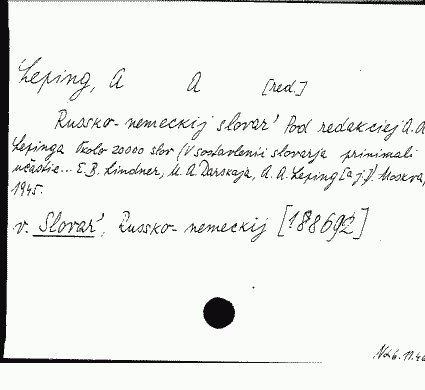 Leping, A A [red.]
Russko-nemeckij slovar' Pod redakciej A. A.
Lepinga Okolo 20000 slov (V sostavlenii slovarja prinimali
učastie... E.B. Lindner, M. A. Darskaja, A. A. Leping [a j.]). Moskva,
1945.
v. Slovar', Russko-nemeckij [188692]